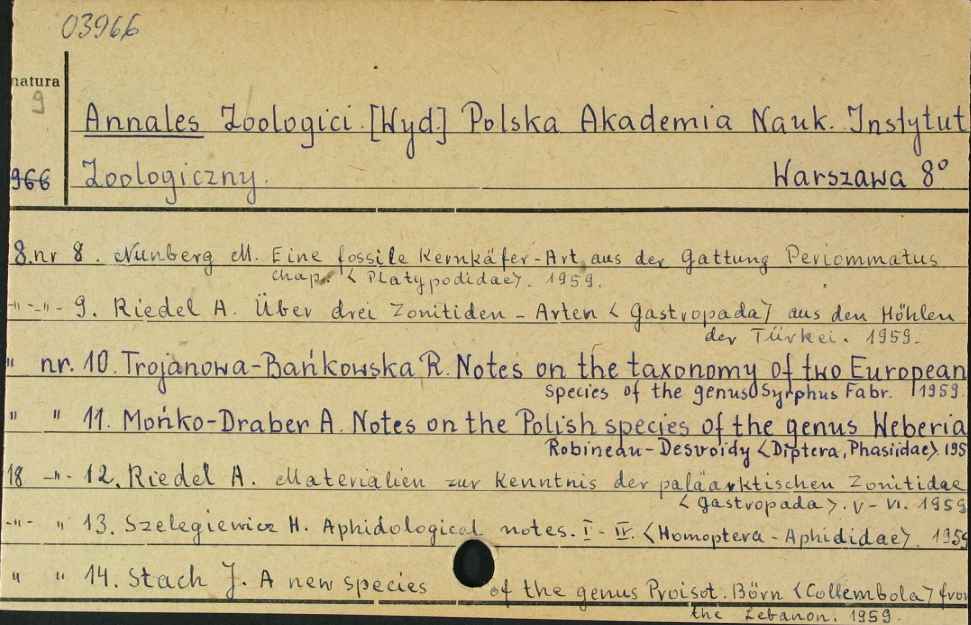 03966
natura
9
Annales Zoologici. [Wyd.] Polska Akademia Nauk. Instytut
966 Zoologiczny. Warszawa 8°
8. nr 8. Nunberg M. Eine fossile Kernkäfer-Art aus der Gattung Periommatus
Chap. <Platypodidae>. 1959.
-"- -"- 9. Riedel A. Über drei Zonitiden-Arten <Gastropada> aus den Höhlen
der Türkei. 1959.
" nr. 10. Trojanowa-Bańkowska R. Notes on the taxonomy of two European
species of the genus Syrphus Fabr. 1959.
" " 11. Mońko-Draber A. Notes on the Polish species of the genus Weberia
Robineau-Desvoidy <Diptera, Phasiidae>. 195
18 -"- 12. Riedel A. Materialien zur Kenntnis der paläarktischen Zonitidae
<Gastropada>. V-VI. 1959
-"- " 13. Szelegiewicz H. Aphidological notes. I-IV. <Homoptera-Aphididae>. 1959
" " 14. Stach J. A new species of the genus Proisot. Börn <Collembola> from
the Lebanon. 1959.